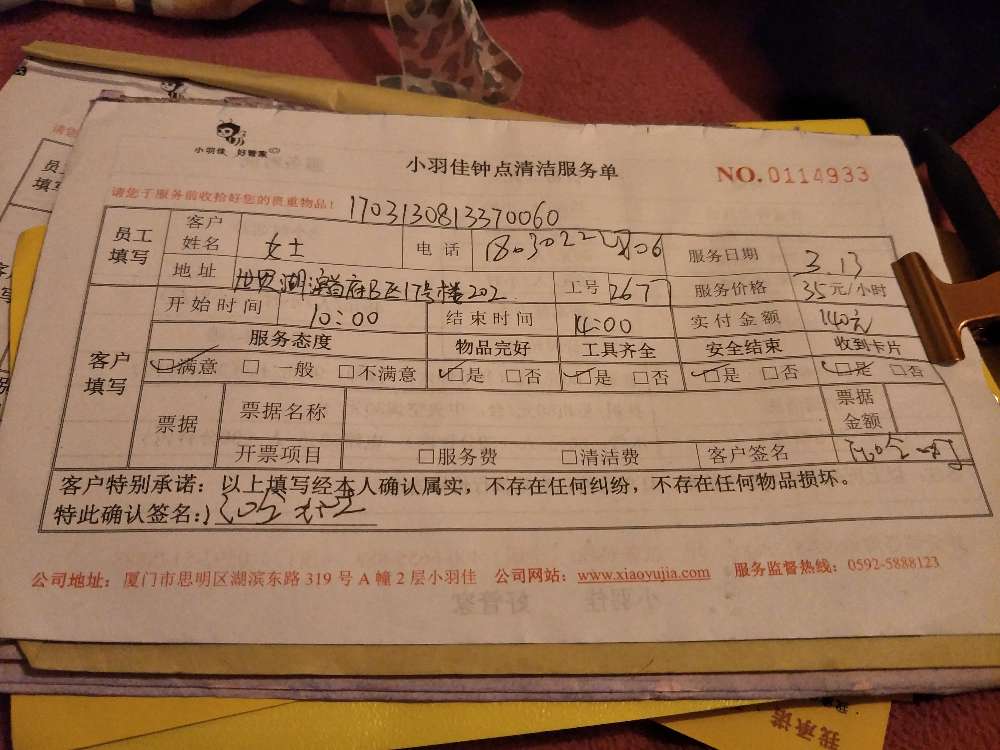 小羽佳 好管家
小羽佳钟点清洁服务单
NO.0114933
请您于服务前收拾好您的贵重物品!
1703130813370060
员工填写 客户姓名 女士 电话 服务日期 3.13
地址 世贸湖滨首府B区17号楼202 工号 2677 服务价格 35元/小时
开始时间 10:00 结束时间 14:00 实付金额 140元
客户填写 服务态度 物品完好 工具齐全 安全结束 收到卡片
☑满意 □一般 □不满意 ☑是 □否 ☑是 □否 ☑是 □否 ☑是 □否
票据 票据名称 票据金额
开票项目 □服务费 □清洁费 客户签名
客户特别承诺：以上填写经本人确认属实，不存在任何纠纷，不存在任何物品损坏。
特此确认签名：
公司地址：厦门市思明区湖滨东路 319 号 A 幢 2 层小羽佳 公司网站：www.xiaoyujia.com 服务监督热线：0592-5888123
我承诺